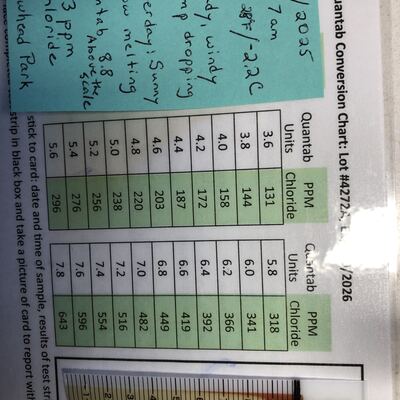 uantab Conversion Chart: Lot #4272A, /2026
/2025
7 am
28°F/-2.2C
dy, windy
mp dropping
erday; Sunny
ow melting
ntab 8.8
Above the
scale
3 ppm
loride
whead Park
Quantab Units PPM Chloride
3.6 131
3.8 144
4.0 158
4.2 172
4.4 187
4.6 203
4.8 220
5.0 238
5.2 256
5.4 276
5.6 296
Quantab Units PPM Chloride
5.8 318
6.0 341
6.2 366
6.4 392
6.6 419
6.8 449
7.0 482
7.2 516
7.4 554
7.6 596
7.8 643
stick to card: date and time of sample, results of test str
strip in black box and take a picture of card to report with